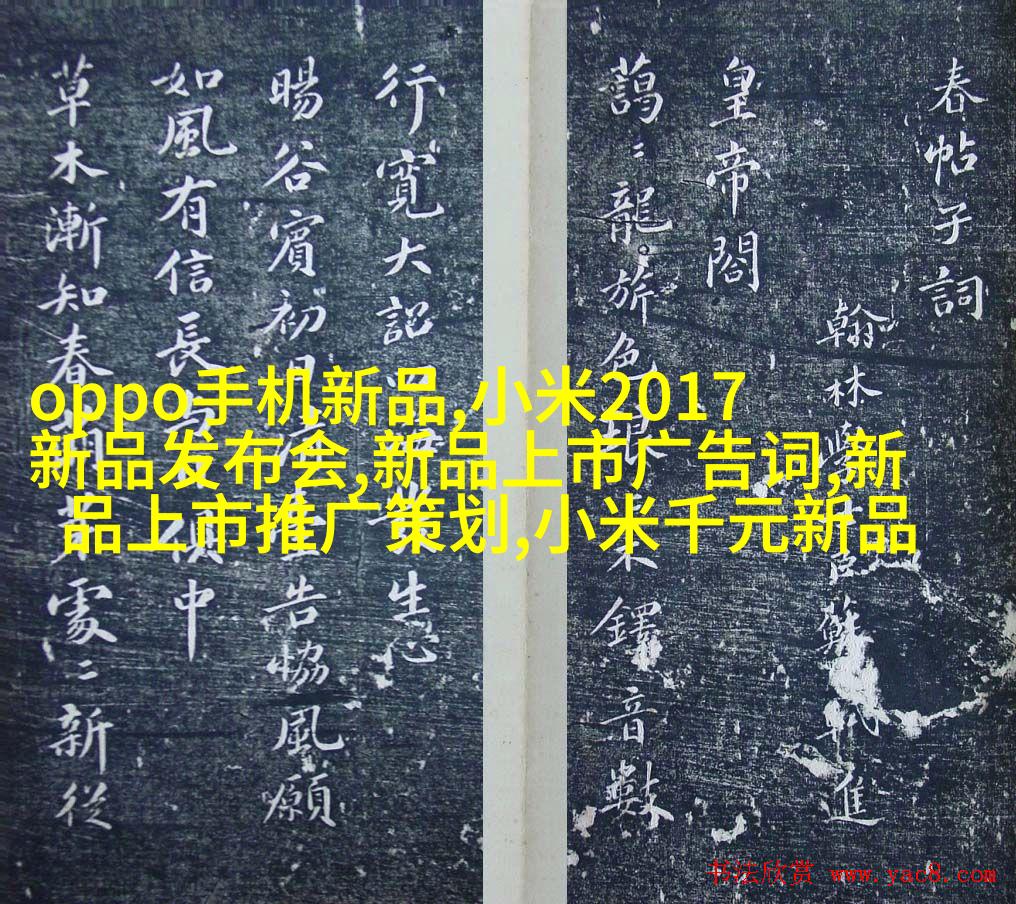 oppo手机新品,小米2017
新品发布会,新品上市广告词,新
品上市推广策划,小米千元新品
春帖子詞
翰林學士臣蘇軾進
皇帝閤
藹〻龍旂色琅木鐸音數
行寬大詔生心
暘谷賓初日告協風願
如風有信長中
草木漸知春處〻新從
书法欣赏 www.yac8.com